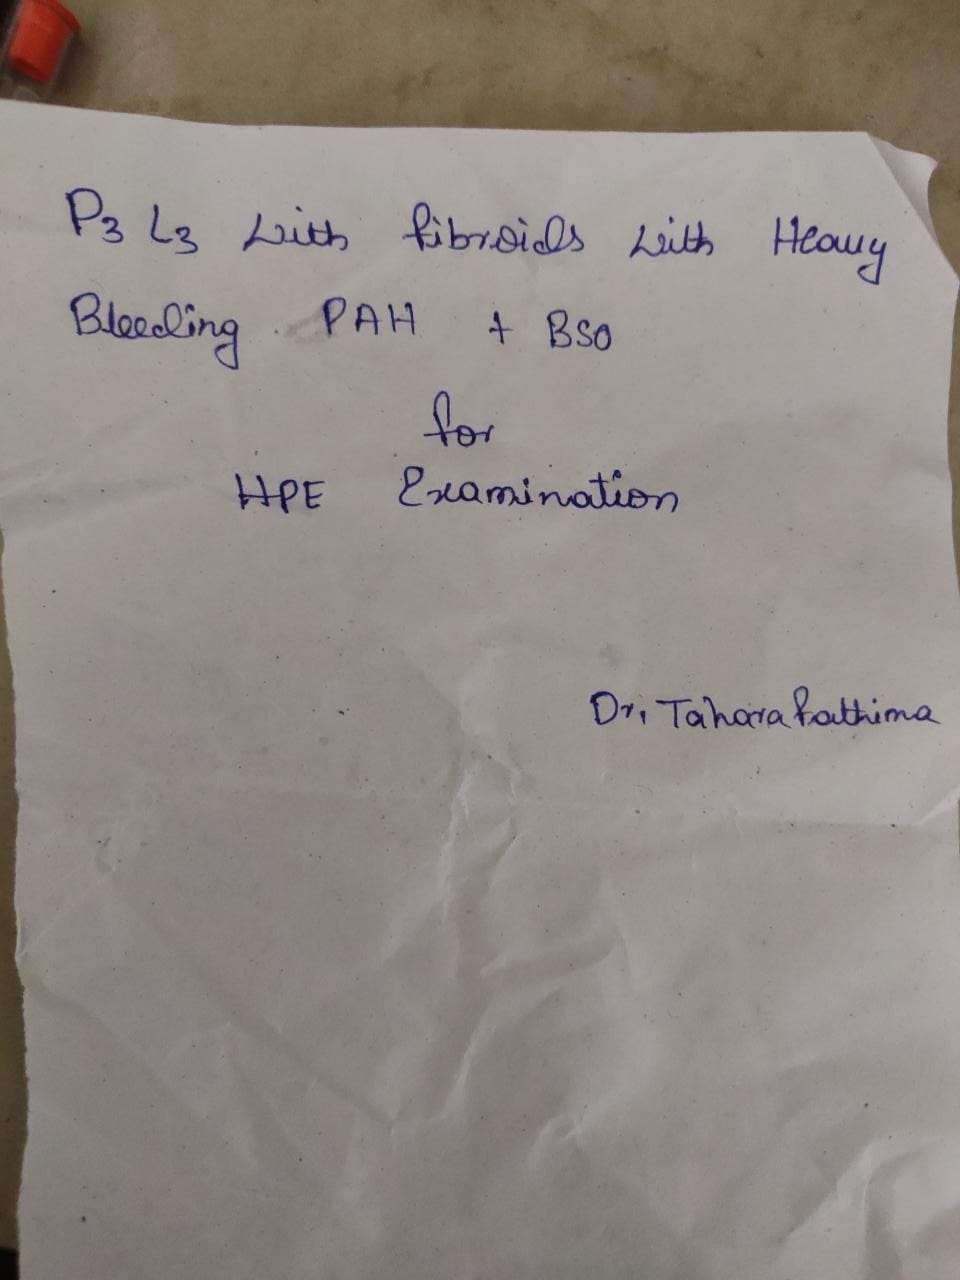 P3 L3 with fibroids with Heavy
Bleeding. PAH + BSO
for
HPE Examination
Dr. Tahara fathima